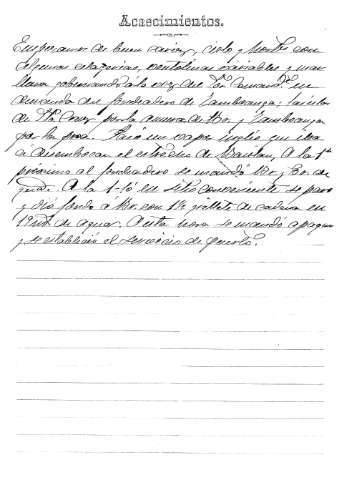 Acaecimientos.
Empezamos de buen cariz, cielo y horizte con
algunas cazorias, ventolinas variables y mar
llana gobernando á la voz del Sor Comandte en
demanda del fondeadero de Zamboanga; la isla
de Sta Cruz por la amura de Br. y Zamboanga
por la proa. Pasó un vapor inglés que iba
á desembocar el estrecho de Basilan. A la 1ª
próximo al fondeadero se mandó Br. y Er. de
guardia. A la 1-10' en sitio conveniente se paró
y dió fondo á Br. con 1½ grillete de cadena en
19 mts de agua. A esta hora se mandó apagar
y se estableció el servicio de puerto.